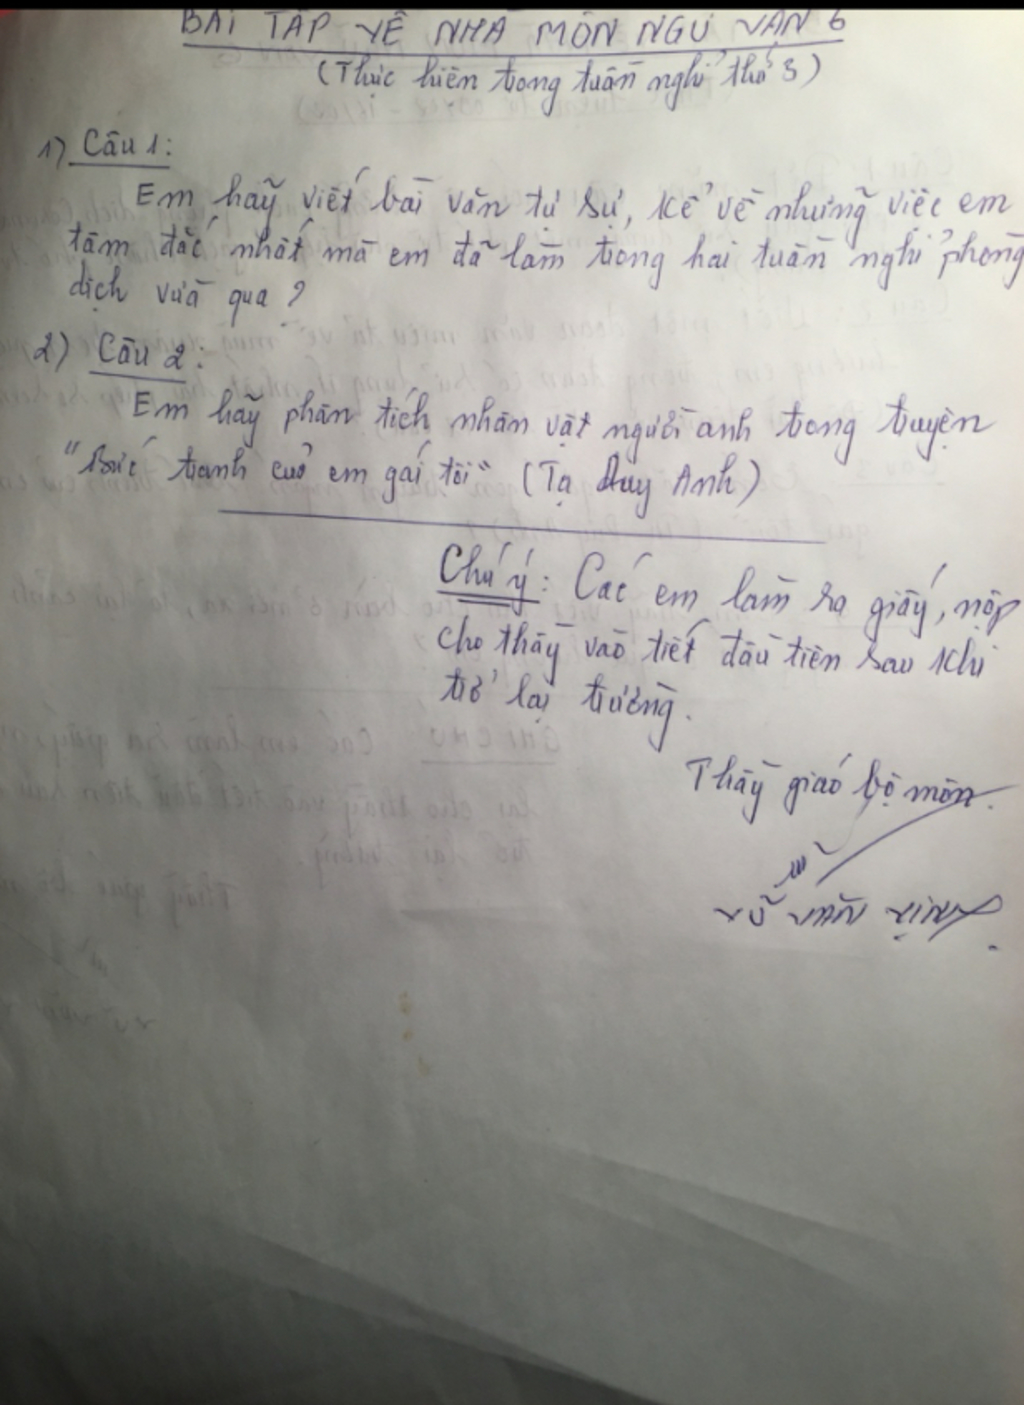 BÀI TẬP VỀ NHÀ MÔN NGỮ VĂN 6
(Thực hiện trong tuần nghỉ thứ 3)
1) Câu 1:
Em hãy viết bài văn tự sự, kể về những việc em
tâm đắc nhất mà em đã làm trong hai tuần nghỉ phòng
dịch vừa qua?
2) Câu 2:
Em hãy phân tích nhân vật người anh trong truyện
"Bức tranh của em gái tôi" (Tạ Duy Anh)
Chú ý: Các em làm ra giấy, nộp
cho thầy vào tiết đầu tiên sau khi
trở lại trường.
Thầy giáo bộ môn.
VŨ VĂN VỊNH